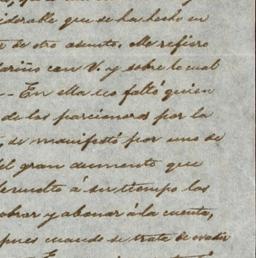 iderable que se ha hecho en
de otro asunto. Me refiero
lariño con V. y sobre lo cual
- En ella no faltó quien
de las parcionaros por la
, se manifestó por uno de
el gran aumento que
devuelto á su tiempo las
obrar y abonar á la cuenta,
spues cuando se trata de